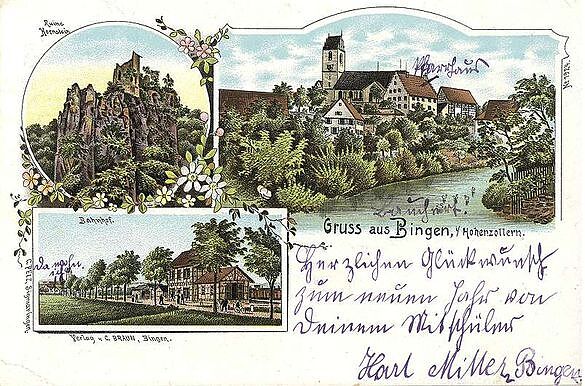 Ruine
Hornstein.
Pfarrhaus
Partie.
Gruss aus Bingen, i/ Hohenzollern.
Bahnhof.
Da wohn
ich.
Verlag v. C. BRAUN, Bingen.
Herzlichen Glückwunsch
zum neuen Jahr von
Deinem Mitschüler
Karl Miller, Bingen.